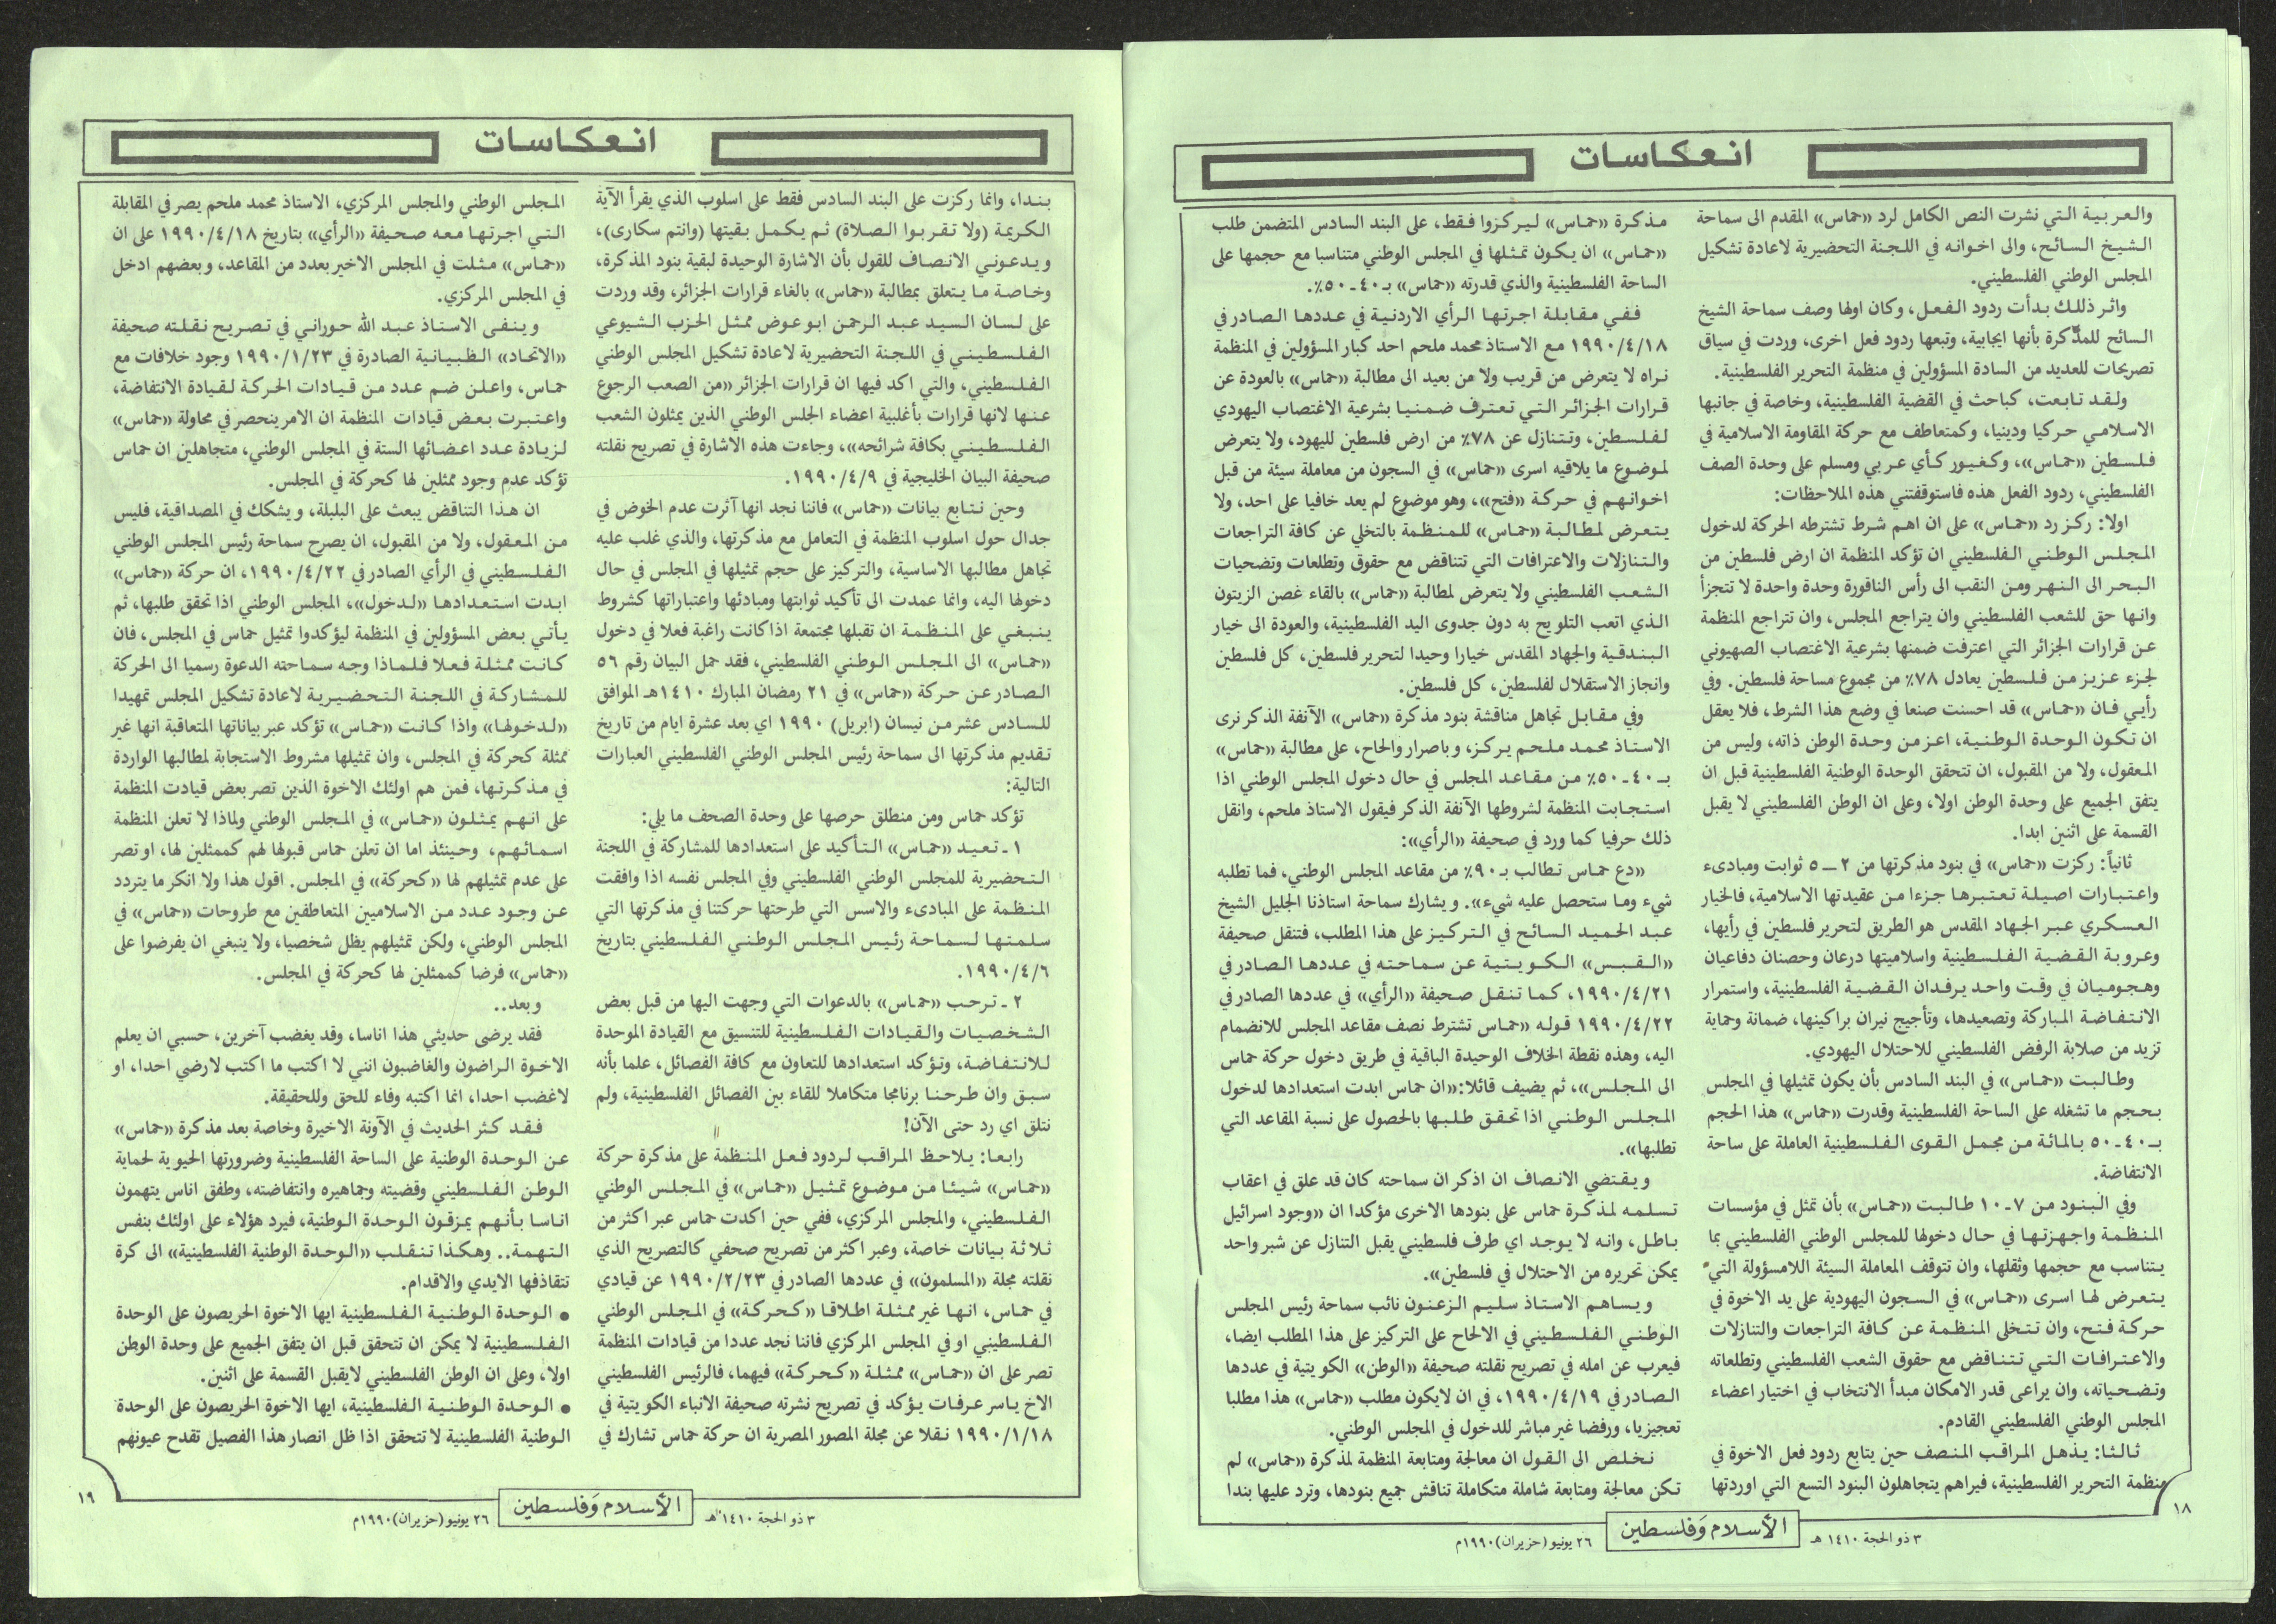 انعكاسات
والعربية التي نشرت النص الكامل لرد «حماس» المقدم الى سماحة
الشيخ السائح، والى اخوانه في اللجنة التحضيرية لاعادة تشكيل
المجلس الوطني الفلسطيني.
واثر ذلك بدأت ردود الفعل، وكان اولها وصف سماحة الشيخ
السائح للمذكرة بأنها ايجابية، وتبعها ردود فعل اخرى، وردت في سياق
تصريحات للعديد من السادة المسؤولين في منظمة التحرير الفلسطينية.
ولقد تابعت، كباحث في القضية الفلسطينية، وخاصة في جانبها
الاسلامي حركيا ودينيا، وكمتعاطف مع حركة المقاومة الاسلامية في
فلسطين «حماس»، وكغيور كأي عربي ومسلم على وحدة الصف
الفلسطيني، ردود الفعل هذه فاستوقفتني هذه الملاحظات:
اولا: ركز رد «حماس» على ان اهم شرط تشترطه الحركة لدخول
المجلس الوطني الفلسطيني ان تؤكد المنظمة ان ارض فلسطين من
البحر الى النهر ومن النقب الى رأس الناقورة وحدة واحدة لا تتجزأ
وانها حق للشعب الفلسطيني وان يتراجع المجلس، وان تتراجع المنظمة
عن قرارات الجزائر التي اعترفت ضمنها بشرعية الاغتصاب الصهيوني
لجزء عزيز من فلسطين يعادل ٧٨٪ من مجموع مساحة فلسطين. وفي
رأيي فان «حماس» قد احسنت صنعا في وضع هذا الشرط، فلا يعقل
ان تكون الوحدة الوطنية، اعز من وحدة الوطن ذاته، وليس من
المعقول، ولا من المقبول، ان تتحقق الوحدة الوطنية الفلسطينية قبل ان
يتفق الجميع على وحدة الوطن اولا، وعلى ان الوطن الفلسطيني لا يقبل
القسمة على اثنين ابدا.
ثانياً: ركزت «حماس» في بنود مذكرتها من ٢ ــ ٥ ثوابت ومبادىء
واعتبارات اصيلة تعتبرها جزءا من عقيدتها الاسلامية، فالخيار
العسكري عبر الجهاد المقدس هو الطريق لتحرير فلسطين في رأيها،
وعروبة القضية الفلسطينية واسلاميتها درعان وحصنان دفاعيان
وهجوميان في وقت واحد يرفدان القضية الفلسطينية، واستمرار
الانتفاضة المباركة وتصعيدها، وتأجيج نيران براكينها، ضمانة وحماية
تزيد من صلابة الرفض الفلسطيني للاحتلال اليهودي.
وطالبت «حماس» في البند السادس بأن يكون تمثيلها في المجلس
بحجم ما تشغله على الساحة الفلسطينية وقدرت «حماس» هذا الحجم
بـ ٤٠ ـ ٥٠ بالمائة من مجمل القوى الفلسطينية العاملة على ساحة
الانتفاضة.
وفي البنود من ٧ ـ ١٠ طالبت «حماس» بأن تمثل في مؤسسات
المنظمة واجهزتها في حال دخولها للمجلس الوطني الفلسطيني بما
يتناسب مع حجمها وثقلها، وان تتوقف المعاملة السيئة اللامسؤولة التي
يتعرض لها اسرى «حماس» في السجون اليهودية على يد الاخوة في
حركة فتح، وان تتخلى المنظمة عن كافة التراجعات والتنازلات
والاعترافات التي تتناقض مع حقوق الشعب الفلسطيني وتطلعاته
وتضحياته، وان يراعى قدر الامكان مبدأ الانتخاب في اختيار اعضاء
المجلس الوطني الفلسطيني القادم.
ثالثا: يذهل المراقب المنصف حين يتابع ردود فعل الاخوة في
منظمة التحرير الفلسطينية، فيراهم يتجاهلون البنود التسع التي اوردتها
مذكرة «حماس» ليركزوا فقط، على البند السادس المتضمن طلب
«حماس» ان يكون تمثلها في المجلس الوطني متناسبا مع حجمها على
الساحة الفلسطينية والذي قدرته «حماس» بـ ٤٠ ـ ٥٠٪.
ففي مقابلة اجرتها الرأي الاردنية في عددها الصادر في
١٩٩٠/٤/١٨ مع الاستاذ محمد ملحم احد كبار المسؤولين في المنظمة
نراه لا يتعرض من قريب ولا من بعيد الى مطالبة «حماس» بالعودة عن
قرارات الجزائر التي تعترف ضمنيا بشرعية الاغتصاب اليهودي
لفلسطين، وتتنازل عن ٧٨٪ من ارض فلسطين لليهود، ولا يتعرض
لموضوع ما يلاقيه اسرى «حماس» في السجون من معاملة سيئة من قبل
اخوانهم في حركة «فتح»، وهو موضوع لم يعد خافيا على احد، ولا
يتعرض لمطالبة «حماس» للمنظمة بالتخلي عن كافة التراجعات
والتنازلات والاعترافات التي تتناقض مع حقوق وتطلعات وتضحيات
الشعب الفلسطيني ولا يتعرض لمطالبة «حماس» بالقاء غصن الزيتون
الذي اتعب التلويح به دون جدوى اليد الفلسطينية، والعودة الى خيار
البندقية والجهاد المقدس خيارا وحيدا لتحرير فلسطين، كل فلسطين
وانجاز الاستقلال لفلسطين، كل فلسطين.
وفي مقابل تجاهل مناقشة بنود مذكرة «حماس» الآنفة الذكر نرى
الاستاذ محمد ملحم يركز، وباصرار والحاح، على مطالبة «حماس»
بـ ٤٠ ـ ٥٠٪ من مقاعد المجلس في حال دخول المجلس الوطني اذا
استجابت المنظمة لشروطها الآنفة الذكر فيقول الاستاذ ملحم، وانقل
ذلك حرفيا كما ورد في صحيفة «الرأي»:
«دع حماس تطالب بـ ٩٠٪ من مقاعد المجلس الوطني، فما تطلبه
شيء وما ستحصل عليه شيء». ويشارك سماحة استاذنا الجليل الشيخ
عبد الحميد السائح في التركيز على هذا المطلب، فتنقل صحيفة
«القبس» الكويتية عن سماحته في عددها الصادر في
١٩٩٠/٤/٢١، كما تنقل صحيفة «الرأي» في عددها الصادر في
١٩٩٠/٤/٢٢ قوله «حماس تشترط نصف مقاعد المجلس للانضمام
اليه، وهذه نقطة الخلاف الوحيدة الباقية في طريق دخول حركة حماس
الى المجلس»، ثم يضيف قائلا: «ان حماس ابدت استعدادها لدخول
المجلس الوطني اذا تحقق طلبها بالحصول على نسبة المقاعد التي
تطلبها».
ويقتضي الانصاف ان اذكر ان سماحته كان قد علق في اعقاب
تسلمه لمذكرة حماس على بنودها الاخرى مؤكدا ان «وجود اسرائيل
باطل، وانه لا يوجد اي طرف فلسطيني يقبل التنازل عن شبر واحد
يمكن تحريره من الاحتلال في فلسطين».
ويساهم الاستاذ سليم الزعنون نائب سماحة رئيس المجلس
الوطني الفلسطيني في الالحاح على التركيز على هذا المطلب ايضا،
فيعرب عن امله في تصريح نقلته صحيفة «الوطن» الكويتية في عددها
الصادر في ١٩٩٠/٤/١٩، في ان لايكون مطلب «حماس» هذا مطلبا
تعجيزيا، ورفضا غير مباشر للدخول في المجلس الوطني.
نخلص الى القول ان معالجة ومتابعة المنظمة لمذكرة «حماس» لم
تكن معالجة ومتابعة شاملة متكاملة تناقش جميع بنودها، وترد عليها بندا
١٨
٣ ذو الحجة ١٤١٠ هـ
الأسلام وَفلسطين
٢٦ يونيو (حزيران) ١٩٩٠م
انعكاسات
بندا، وانما ركزت على البند السادس فقط على اسلوب الذي يقرأ الآية
الكريمة (ولا تقربوا الصلاة) ثم يكمل بقيتها (وانتم سكارى)،
ويدعوني الانصاف للقول بأن الاشارة الوحيدة لبقية بنود المذكرة،
وخاصة ما يتعلق بمطالبة «حماس» بالغاء قرارات الجزائر، وقد وردت
على لسان السيد عبد الرحمن ابو عوض ممثل الحزب الشيوعي
الفلسطيني في اللجنة التحضيرية لاعادة تشكيل المجلس الوطني
الفلسطيني، والتي اكد فيها ان قرارات الجزائر «من الصعب الرجوع
عنها لانها قرارات بأغلبية اعضاء الجلس الوطني الذين يمثلون الشعب
الفلسطيني بكافة شرائحه»، وجاءت هذه الاشارة في تصريح نقلته
صحيفة البيان الخليجية في ١٩٩٠/٤/٩.
وحين نتابع بيانات «حماس» فاننا نجد انها آثرت عدم الخوض في
جدال حول اسلوب المنظمة في التعامل مع مذكرتها، والذي غلب عليه
تجاهل مطالبها الاساسية، والتركيز على حجم تمثيلها في المجلس في حال
دخولها اليه، وانما عمدت الى تأكيد ثوابتها ومبادئها واعتباراتها كشروط
ينبغي على المنظمة ان تقبلها مجتمعة اذا كانت راغبة فعلا في دخول
«حماس» الى المجلس الوطني الفلسطيني، فقد حمل البيان رقم ٥٦
الصادر عن حركة «حماس» في ٢١ رمضان المبارك ١٤١٠هـ الموافق
للسادس عشر من نيسان (ابريل) ١٩٩٠ اي بعد عشرة ايام من تاريخ
تقديم مذكرتها الى سماحة رئيس المجلس الوطني الفلسطيني العبارات
التالية:
تؤكد حماس ومن منطلق حرصها على وحدة الصحف ما يلي:
١ ـ تعيد «حماس» التأكيد على استعدادها للمشاركة في اللجنة
التحضيرية للمجلس الوطني الفلسطيني وفي المجلس نفسه اذا وافقت
المنظمة على المبادىء والاسس التي طرحتها حركتنا في مذكرتها التي
سلمتها لسماحة رئيس المجلس الوطني الفلسطيني بتاريخ
١٩٩٠/٤/٦.
٢ ـ ترحب «حماس» بالدعوات التي وجهت اليها من قبل بعض
الشخصيات والقيادات الفلسطينية للتنسيق مع القيادة الموحدة
للانتفاضة، وتؤكد استعدادها للتعاون مع كافة الفصائل، علما بأنه
سبق وان طرحنا برنامجا متكاملا للقاء بين الفصائل الفلسطينية، ولم
نتلق اي رد حتى الآن!
رابعا: يلاحظ المراقب لردود فعل المنظمة على مذكرة حركة
«حماس» شيئا من موضوع تمثيل «حماس» في المجلس الوطني
الفلسطيني، والمجلس المركزي، ففي حين اكدت حماس عبر اكثر من
ثلاثة بيانات خاصة، وعبر اكثر من تصريح صحفي كالتصريح الذي
نقلته مجلة «المسلمون» في عددها الصادر في ١٩٩٠/٢/٢٣ عن قيادي
في حماس، انها غير ممثلة اطلاقا «كحركة» في المجلس الوطني
الفلسطيني او في المجلس المركزي فاننا نجد عددا من قيادات المنظمة
تصر على ان «حماس» ممثلة «كحركة» فيهما، فالرئيس الفلسطيني
الاخ ياسر عرفات يؤكد في تصريح نشرته صحيفة الانباء الكويتية في
١٩٩٠/١/١٨ نقلا عن مجلة المصور المصرية ان حركة حماس تشارك في
المجلس الوطني والمجلس المركزي، الاستاذ محمد ملحم يصر في المقابلة
التي اجرتها معه صحيفة «الرأي» بتاريخ ١٩٩٠/٤/١٨ على ان
«حماس» مثلت في المجلس الاخير بعدد من المقاعد، وبعضهم ادخل
في المجلس المركزي.
وينفى الاستاذ عبد الله حوراني في تصريح نقلته صحيفة
«الاتحاد» الظبيانية الصادرة في ١٩٩٠/١/٢٣ وجود خلافات مع
حماس، واعلن ضم عدد من قيادات الحركة لقيادة الانتفاضة،
واعتبرت بعض قيادات المنظمة ان الامر ينحصر في محاولة «حماس»
لزيادة عدد اعضائها الستة في المجلس الوطني، متجاهلين ان حماس
تؤكد عدم وجود ممثلين لها كحركة في المجلس.
ان هذا التناقض يبعث على البلبلة، ويشكك في المصداقية، فليس
من المعقول، ولا من المقبول، ان يصرح سماحة رئيس المجلس الوطني
الفلسطيني في الرأي الصادر في ١٩٩٠/٤/٢٢، ان حركة «حماس»
ابدت استعدادها «لدخول»، المجلس الوطني اذا تحقق طلبها، ثم
يأتي بعض المسؤولين في المنظمة ليؤكدوا تمثيل حماس في المجلس، فان
كانت ممثلة فعلا فلماذا وجه سماحته الدعوة رسميا الى الحركة
للمشاركة في اللجنة التحضيرية لاعادة تشكيل المجلس تمهيدا
«لدخولها» واذا كانت «حماس» تؤكد عبر بياناتها المتعاقبة انها غير
ممثلة كحركة في المجلس، وان تمثيلها مشروط الاستجابة لمطالبها الواردة
في مذكرتها، فمن هم اولئك الاخوة الذين تصر بعض قيادت المنظمة
على انهم يمثلون «حماس» في المجلس الوطني ولماذا لا تعلن المنظمة
اسمائهم، وحينئذ اما ان تعلن حماس قبولها لهم كممثلين لها، او تصر
على عدم تمثيلهم لها «كحركة» في المجلس. اقول هذا ولا انكر ما يتردد
عن وجود عدد من الاسلاميين المتعاطفين مع طروحات «حماس» في
المجلس الوطني، ولكن تمثيلهم يظل شخصيا، ولا ينبغي ان يفرضوا على
«حماس» فرضا كممثلين لها كحركة في المجلس.
وبعد..
فقد يرضى حديثي هذا اناسا، وقد يغضب آخرين، حسبي ان يعلم
الاخوة الراضون والغاضبون انني لا اكتب ما اكتب لارضي احدا، او
لاغضب احدا، انما اكتبه وفاء للحق وللحقيقة.
فقد كثر الحديث في الآونة الاخيرة وخاصة بعد مذكرة «حماس»
عن الوحدة الوطنية على الساحة الفلسطينية وضرورتها الحيوية لحماية
الوطن الفلسطيني وقضيته وجماهيره وانتفاضته، وطفق اناس يتهمون
اناسا بأنهم يمزقون الوحدة الوطنية، فيرد هؤلاء على اولئك بنفس
التهمة.. وهكذا تنقلب «الوحدة الوطنية الفلسطينية» الى كرة
تتقاذفها الايدي والاقدام.
● الوحدة الوطنية الفلسطينية ايها الاخوة الحريصون على الوحدة
الفلسطينية لا يمكن ان تتحقق قبل ان يتفق الجميع على وحدة الوطن
اولا، وعلى ان الوطن الفلسطيني لايقبل القسمة على اثنين.
● الوحدة الوطنية الفلسطينية، ايها الاخوة الحريصون على الوحدة
الوطنية الفلسطينية لا تتحقق اذا ظل انصار هذا الفصيل تقدح عيونهم
٣ ذو الحجة ١٤١٠ هـ
الأسلام وَفلسطين
٢٦ يونيو (حزيران) ١٩٩٠م
١٩